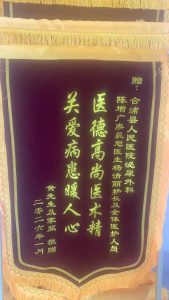 赠：合浦县人民医院泌尿外科
陈增广李晨旭医生杨清丽护长及全体医护人员
医德高尚医术精
关爱病患暖人心
黄先生及家属 敬赠
二〇二六年一月